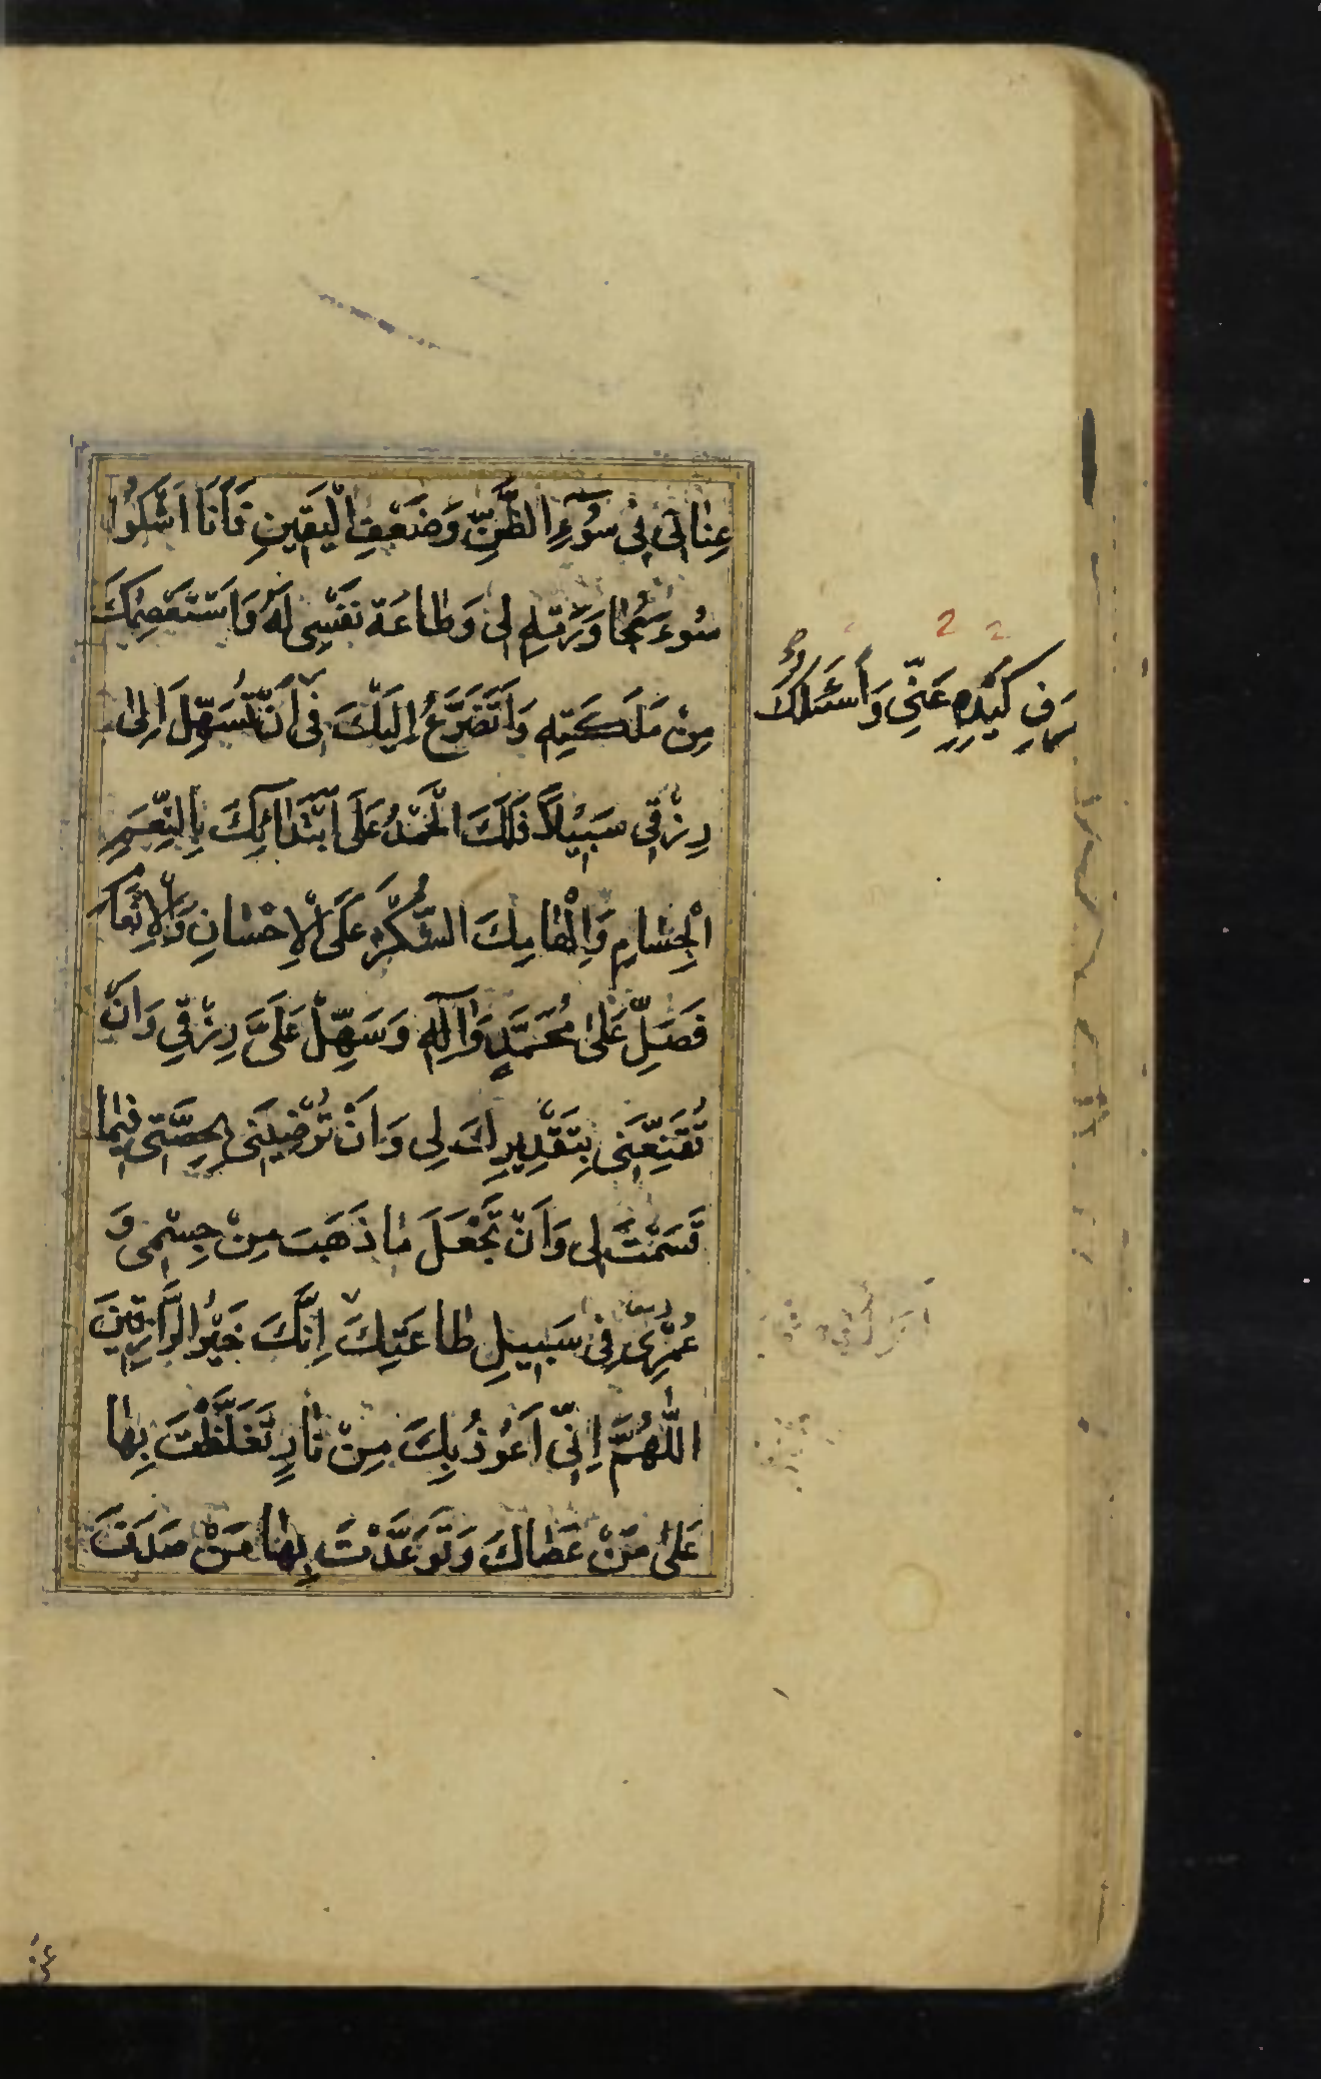 عِنٰانی فِی سُوٓءِ الظَّنِّ وَضَعْفِ الْیَقِینِ فَاَنَا اَشْکُوا
سُوءَ مُجٰاوَرَتِهِ لِی وَطٰاعَةَ نَفْسِی لَهُ وَاَسْتَعْصِمُکَ
مِنْ مَلَکَتِهِ وَاَتَضَرَّعُ اِلَیْکَ فِی اَنْ تُسَهِّلَ اِلٰی
رِزْقِی سَبِیْلاً فَلَکَ الْحَمْدُ عَلَی ابْتِدٰائِکَ بِالنِّعَمِ
الْجِسٰامِ وَاِلْهٰامِکَ الشُّکْرَ عَلَی الْاِحْسٰانِ وَالْاِنْعَامِ
فَصَلِّ عَلٰی مُحَمَّدٍ وَاٰلِهِ وَسَهِّلْ عَلَیَّ رِزْقِی وَاَنْ
تُقَنِّعَنِی بِتَقْدِیرِکَ لِی وَاَنْ تُرْضِیَنِی بِحِصَّتِی فِیمٰا
قَسَمْتَ لِی وَاَنْ تَجْعَلَ مٰا ذَهَبَ مِنْ جِسْمِی وَ
عُمْرِی فِی سَبِیلِ طٰاعَتِکَ اِنَّکَ خَیْرُ الرَّازِقِینَ
اللّٰهُمَّ اِنِّی اَعُوذُ بِکَ مِنْ نٰارٍ تَغَلَّظْتَ بِهٰا
عَلٰی مَنْ عَصٰاکَ وَتَوَعَّدْتَ بِهٰا مَنْ صَدَفَ
کَیْدِهِ عَنِّی وَاَسْئَلُکَ
عن